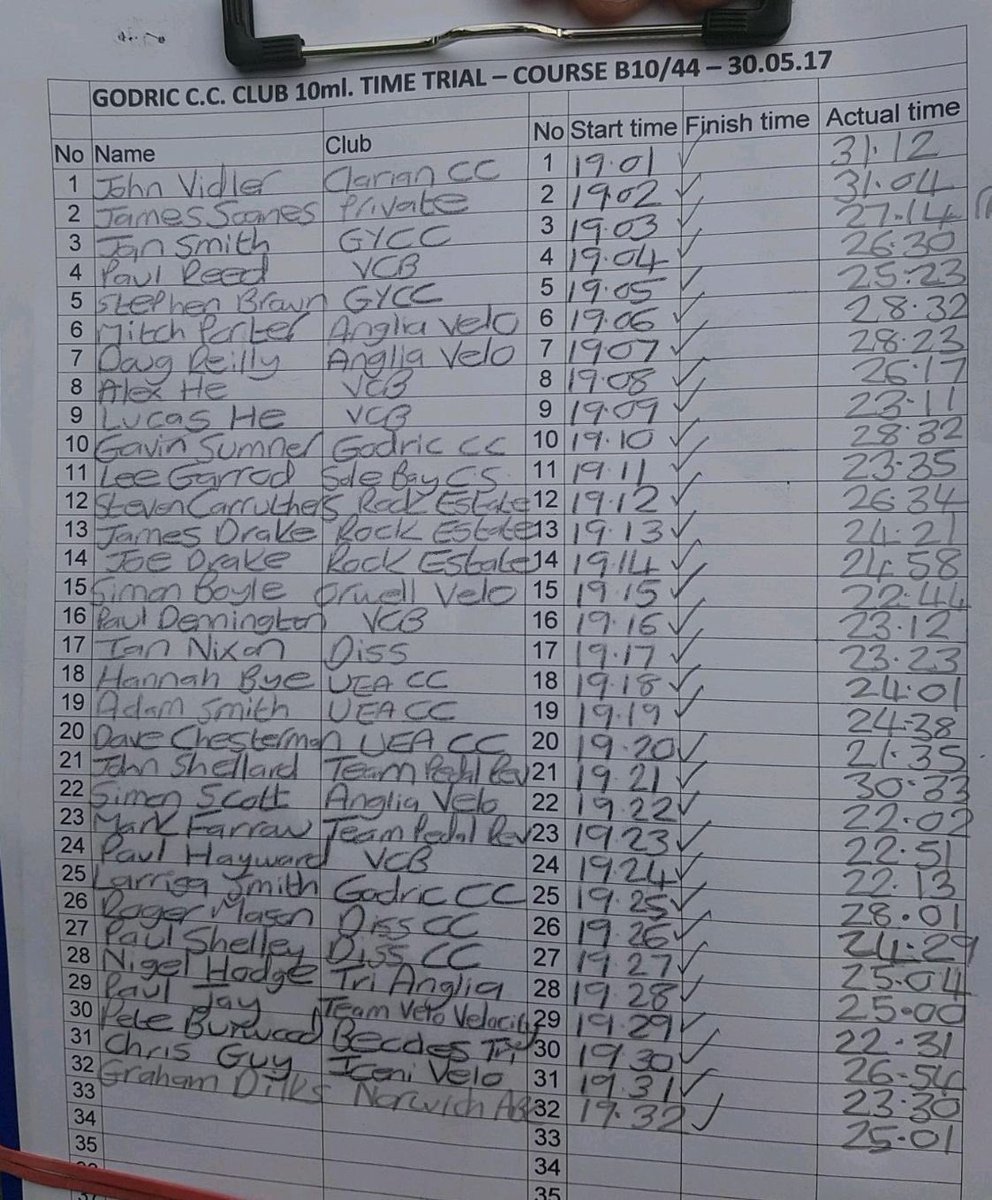 GODRIC C.C. CLUB 10ml. TIME TRIAL – COURSE B10/44 – 30.05.17
No Name Club No Start time Finish time Actual time
1 John Vidler Clarian CC 1 19.01 ✓ 31.12
2 James Soanes Private 2 19.02 ✓ 31.04
3 Jan Smith GYCC 3 19.03 ✓ 27.14
4 Paul Reed VCB 4 19.04 ✓ 26.30
5 Stephen Brown GYCC 5 19.05 ✓ 25:23
6 Mitch Porter Anglia Velo 6 19.06 ✓ 28.32
7 Doug Reilly Anglia Velo 7 19.07 ✓ 28.23
8 Alex He VCB 8 19.08 ✓ 26.17
9 Lucas He VCB 9 19.09 ✓ 23.11
10 Gavin Sumner Godric CC 10 19.10 ✓ 28.32
11 Lee Garrod Sole Bay CS 11 19.11 ✓ 23.35
12 Steven Carruthers Rock Estate 12 19.12 ✓ 26.34
13 James Drake Rock Estate 13 19.13 ✓ 24.21
14 Joe Drake Rock Estate 14 19.14 ✓ 24.58
15 Simon Boyle Orwell Velo 15 19.15 ✓ 22.44
16 Paul Dennington VCB 16 19.16 ✓ 23.12
17 Ian Nixon Diss 17 19.17 ✓ 23.23
18 Hannah Bye UEA CC 18 19.18 ✓ 24.01
19 Adam Smith UEA CC 19 19.19 ✓ 24.38
20 Dave Chesterman UEA CC 20 19.20 ✓ 21.35
21 John Shellard Team Pedal Rev 21 19.21 ✓ 30.33
22 Simon Scott Anglia Velo 22 19.22 ✓ 22.02
23 Mark Farrow Team Pedal Rev 23 19.23 ✓ 22.51
24 Paul Hayward VCB 24 19.24 ✓ 22.13
25 Larrisa Smith Godric CC 25 19.25 ✓ 28.01
26 Roger Mason Diss CC 26 19.26 ✓ 24.29
27 Paul Shelley Diss CC 27 19.27 ✓ 25.04
28 Nigel Hodge Tri Anglia 28 19.28 ✓ 25.00
29 Paul Jay Team Velo Velocity 29 19.29 ✓ 22.31
30 Pete Burwood Beccles Tri 30 19.30 ✓ 26.54
31 Chris Guy Iceni Velo 31 19.31 ✓ 23.30
32 Graham Dilks Norwich 32 19.32 ✓ 25.01
33 33
34 34
35 35